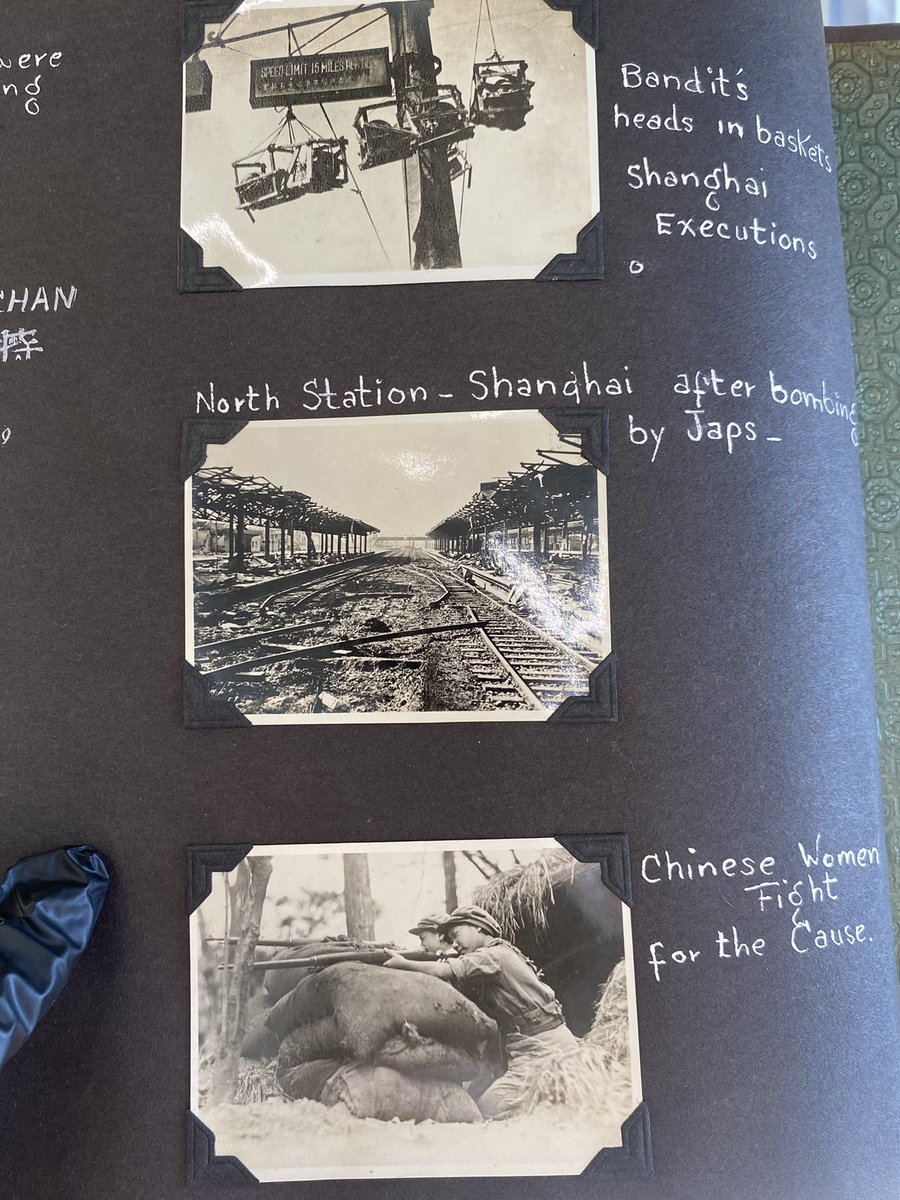 were
ng
SPEED LIMIT 15 MILES PER
Bandit's
heads in baskets
Shanghai
Executions
CHAN
North Station - Shanghai after bombing
by Japs -
Chinese Women
Fight
for the Cause.